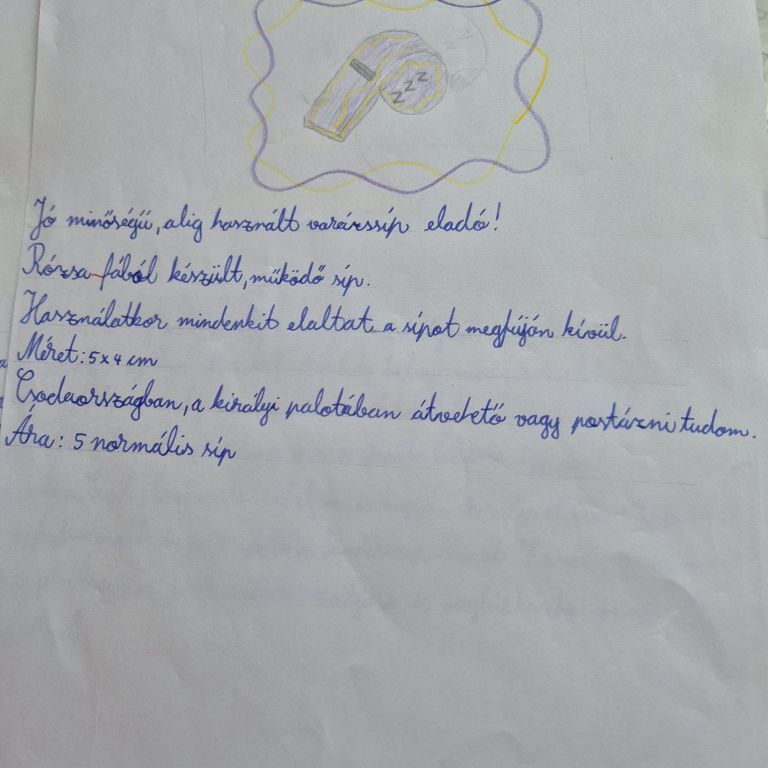 zzz
Jó minőségű, alig használt varázssíp eladó!
Rózsa fából készült, működő síp.
Használatkor mindenkit elaltat a sípot megfújón kívül.
Méret: 5 x 4 cm
Csodaországban, a királyi palotában átvehető vagy postázni tudom.
Ára: 5 normális síp